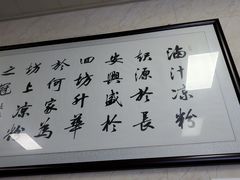 滷汁凉粉
织源於長
安興盛於
四坊升華
於何家為
坊上凉粉
之冠